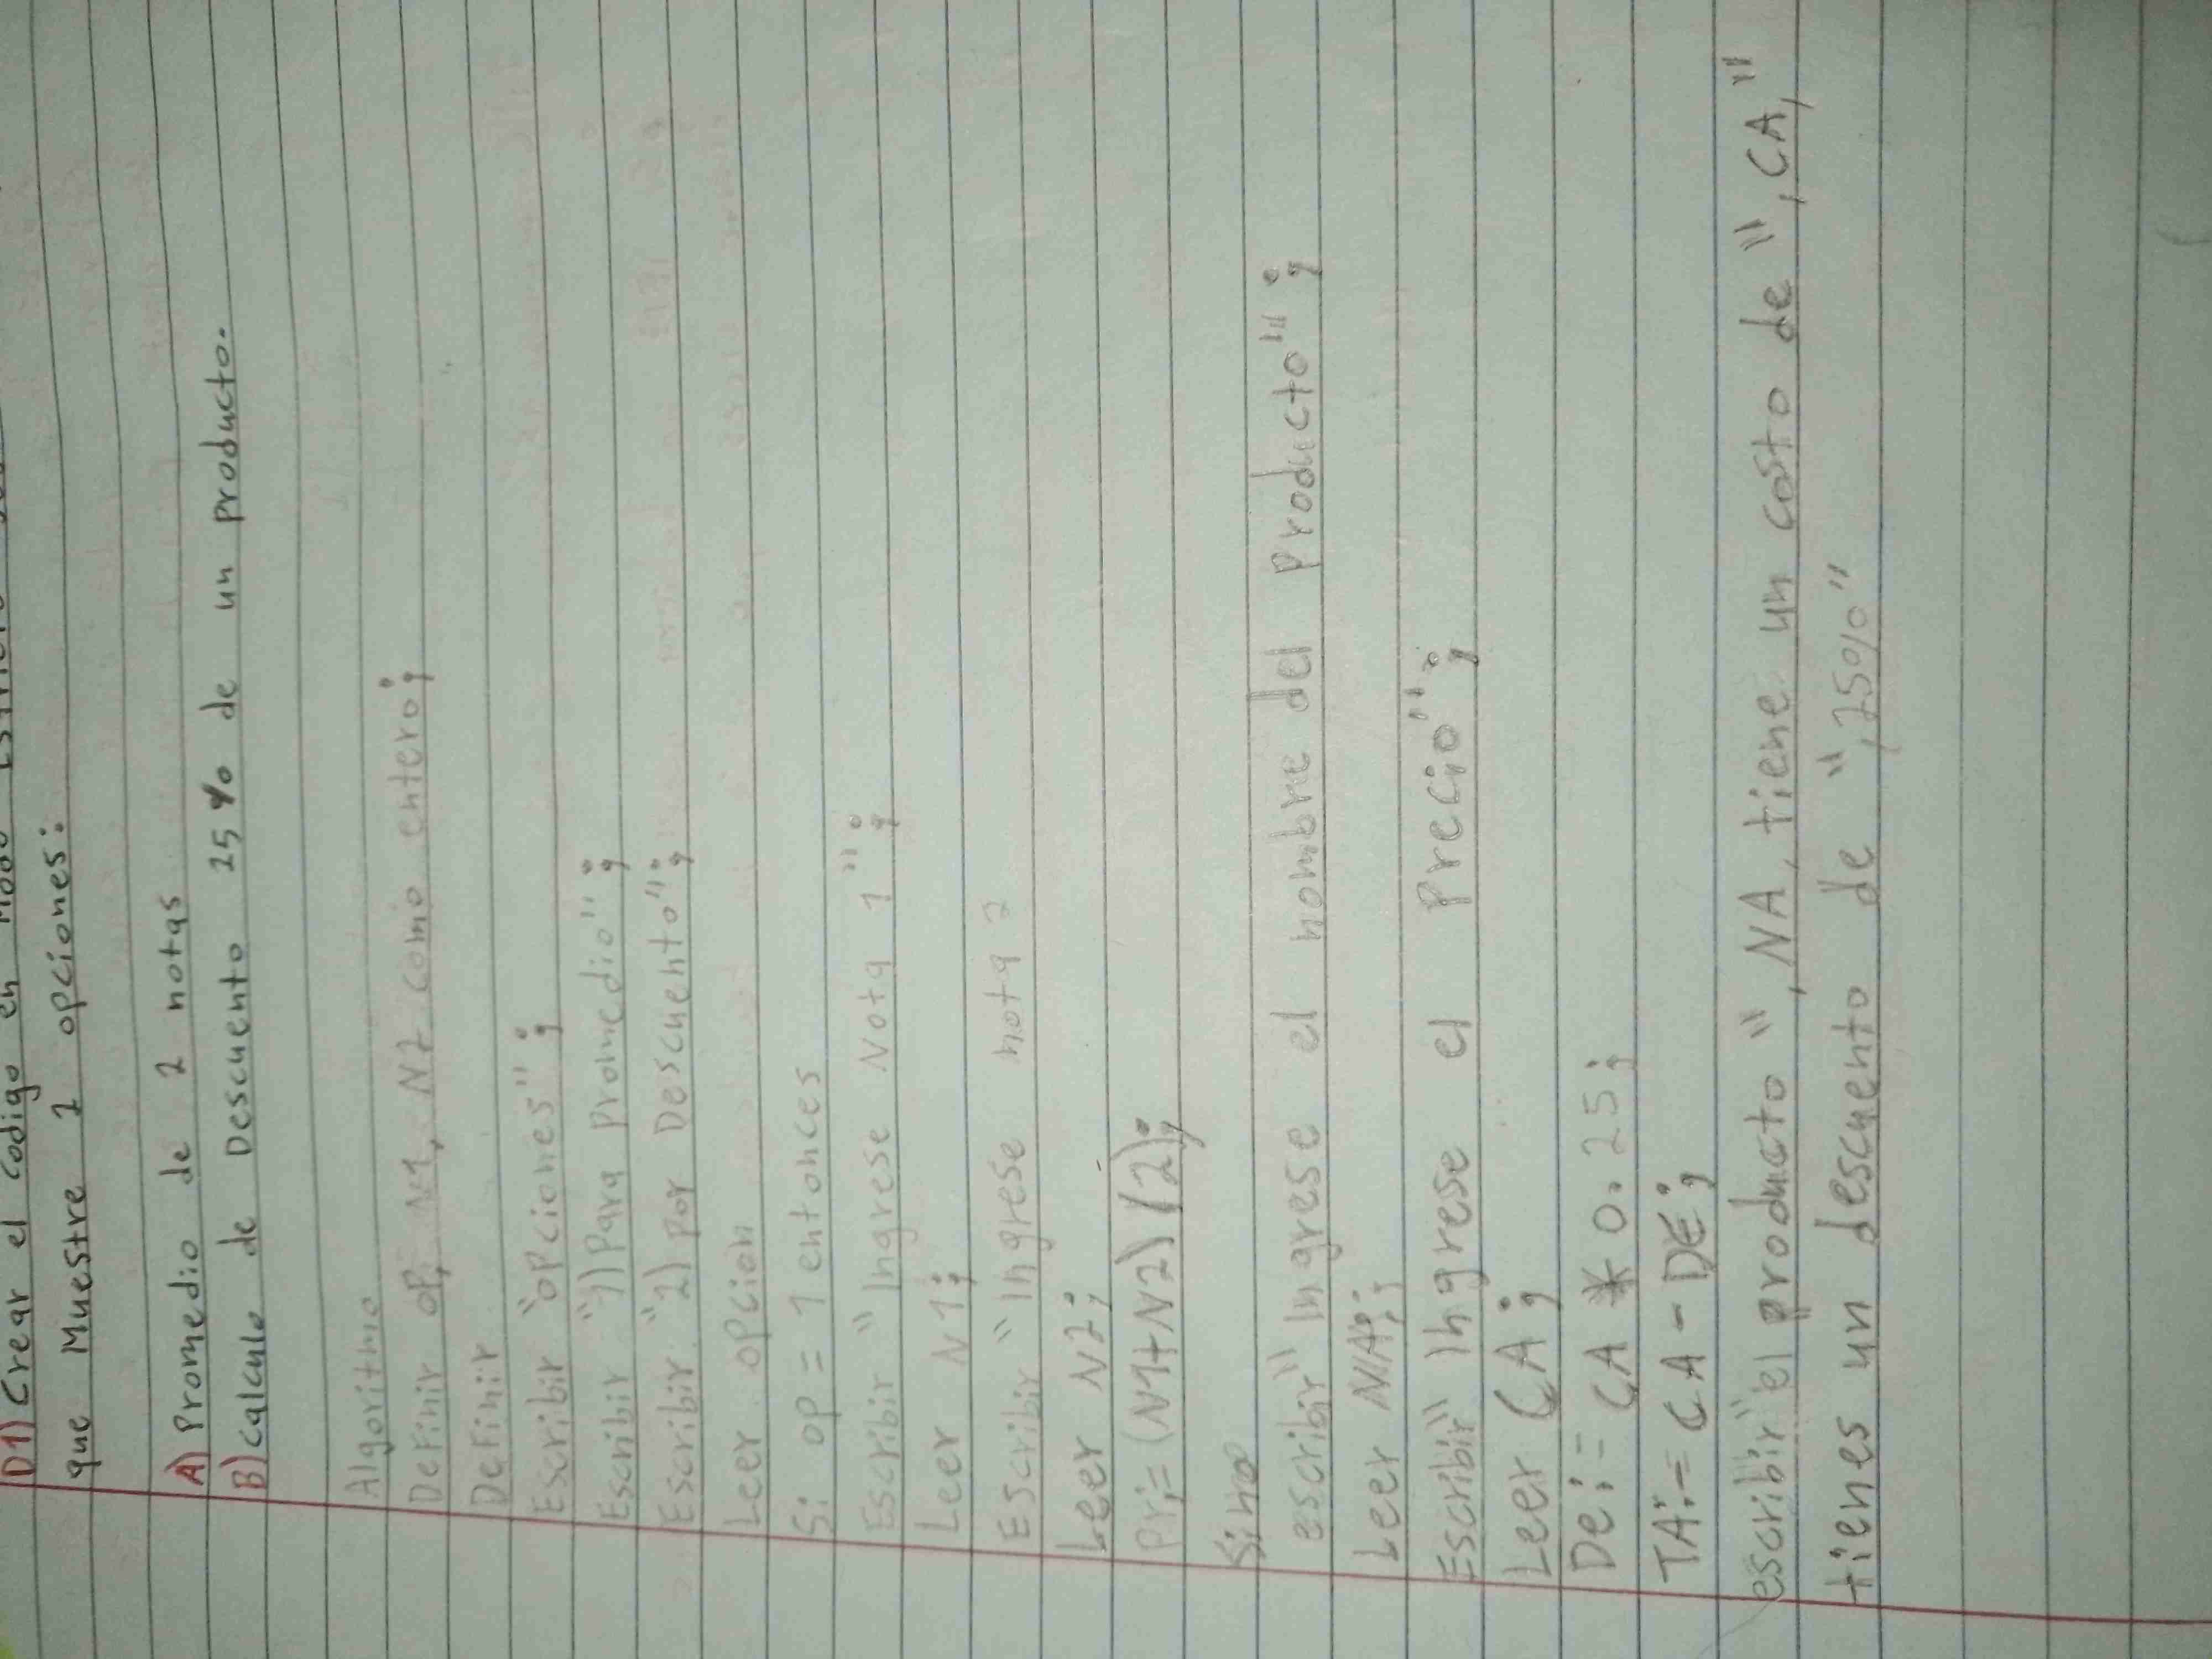 D1) Crear el codigo en Modo
que Muestre 2 opciones:
A) Promedio de 2 notas
B) Calculo de Descuento 25% de un producto.
Algoritmo
Definir op, N1, N2 como entero;
Definir
Escribir "opciones";
Escribir "1) Para promedio";
Escribir "2) por Descuento";
Leer opcion
Si op = 1 entonces
Escribir "Ingrese Nota 1";
Leer N1;
Escribir "Ingrese nota 2
Leer N2;
Pr:= (N1+N2)/(2);
Sino
escribir "Ingrese el nombre del Producto";
Leer NA;
Escribir "Ingrese el Precio";
Leer CA;
De:= CA * 0.25;
TA:= CA - DE;
escribir "el producto", NA, tiene un costo de", CA,"
tienes un descuento de ",25%"